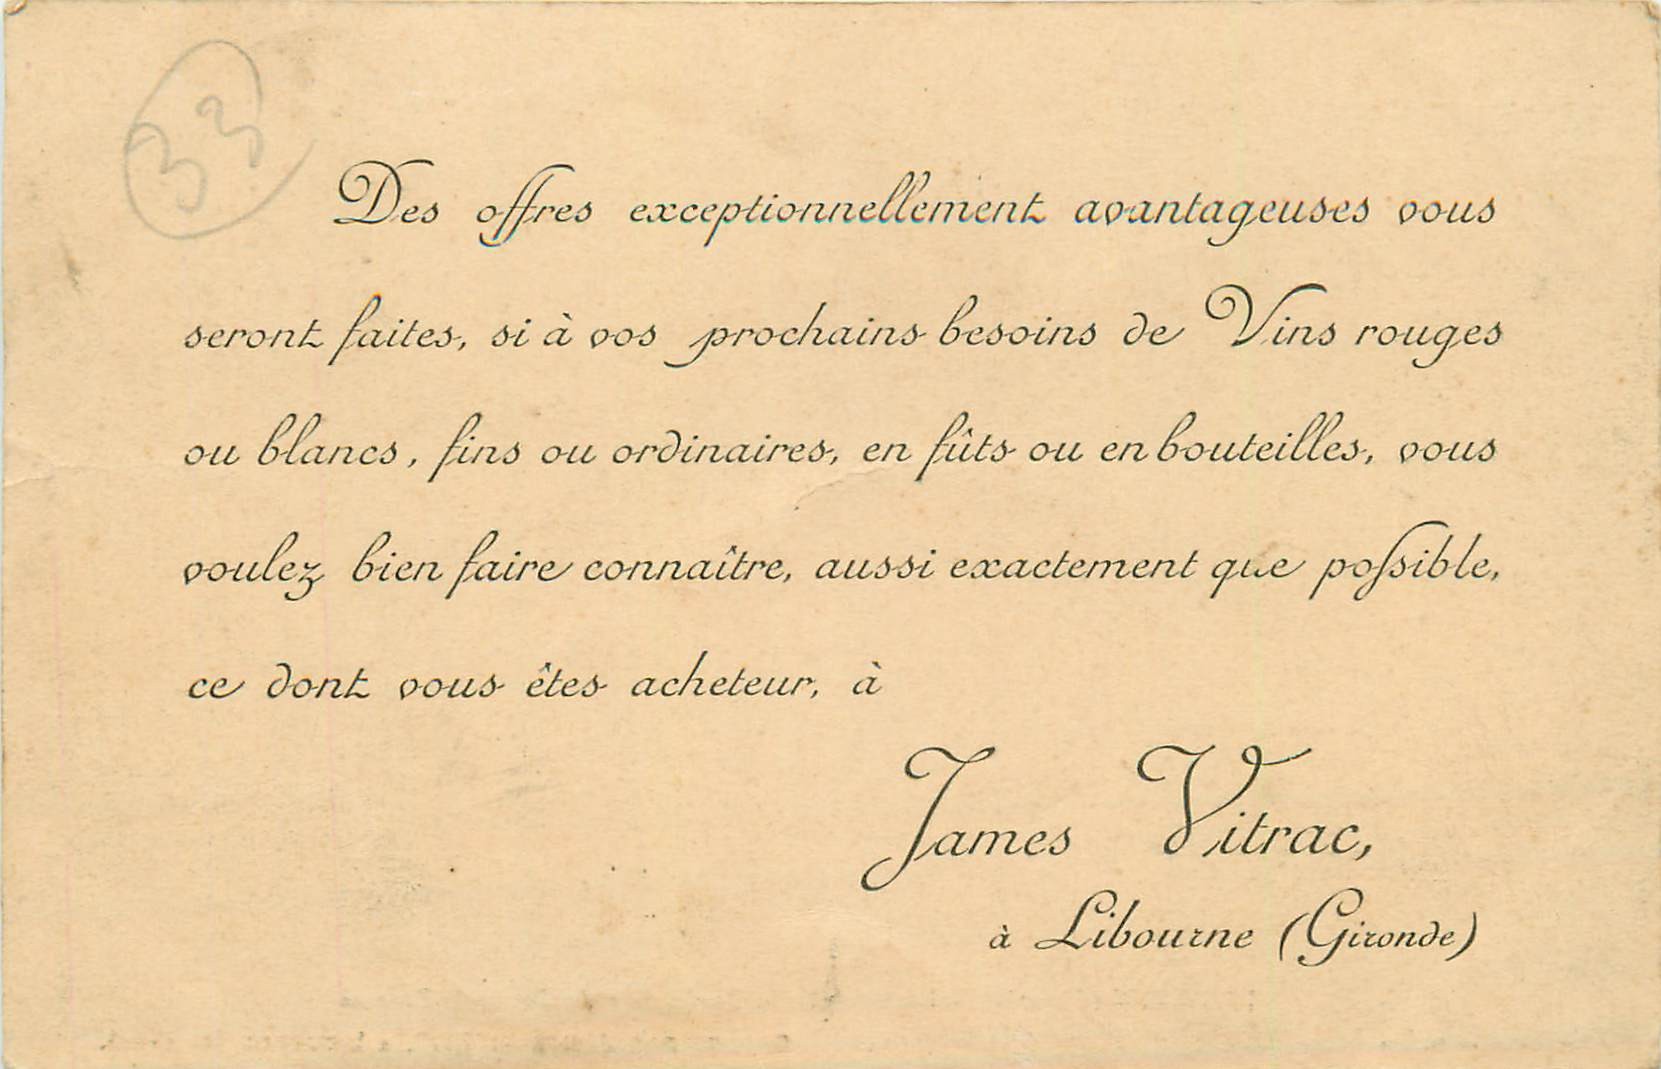 33
Des offres exceptionnellement avantageuses vous
seront faites, si à vos prochains besoins de Vins rouges
ou blancs, fins ou ordinaires, en fûts ou en bouteilles, vous
voulez bien faire connaître, aussi exactement que possible,
ce dont vous êtes acheteur, à
James Vitrac,
à Libourne (Gironde)